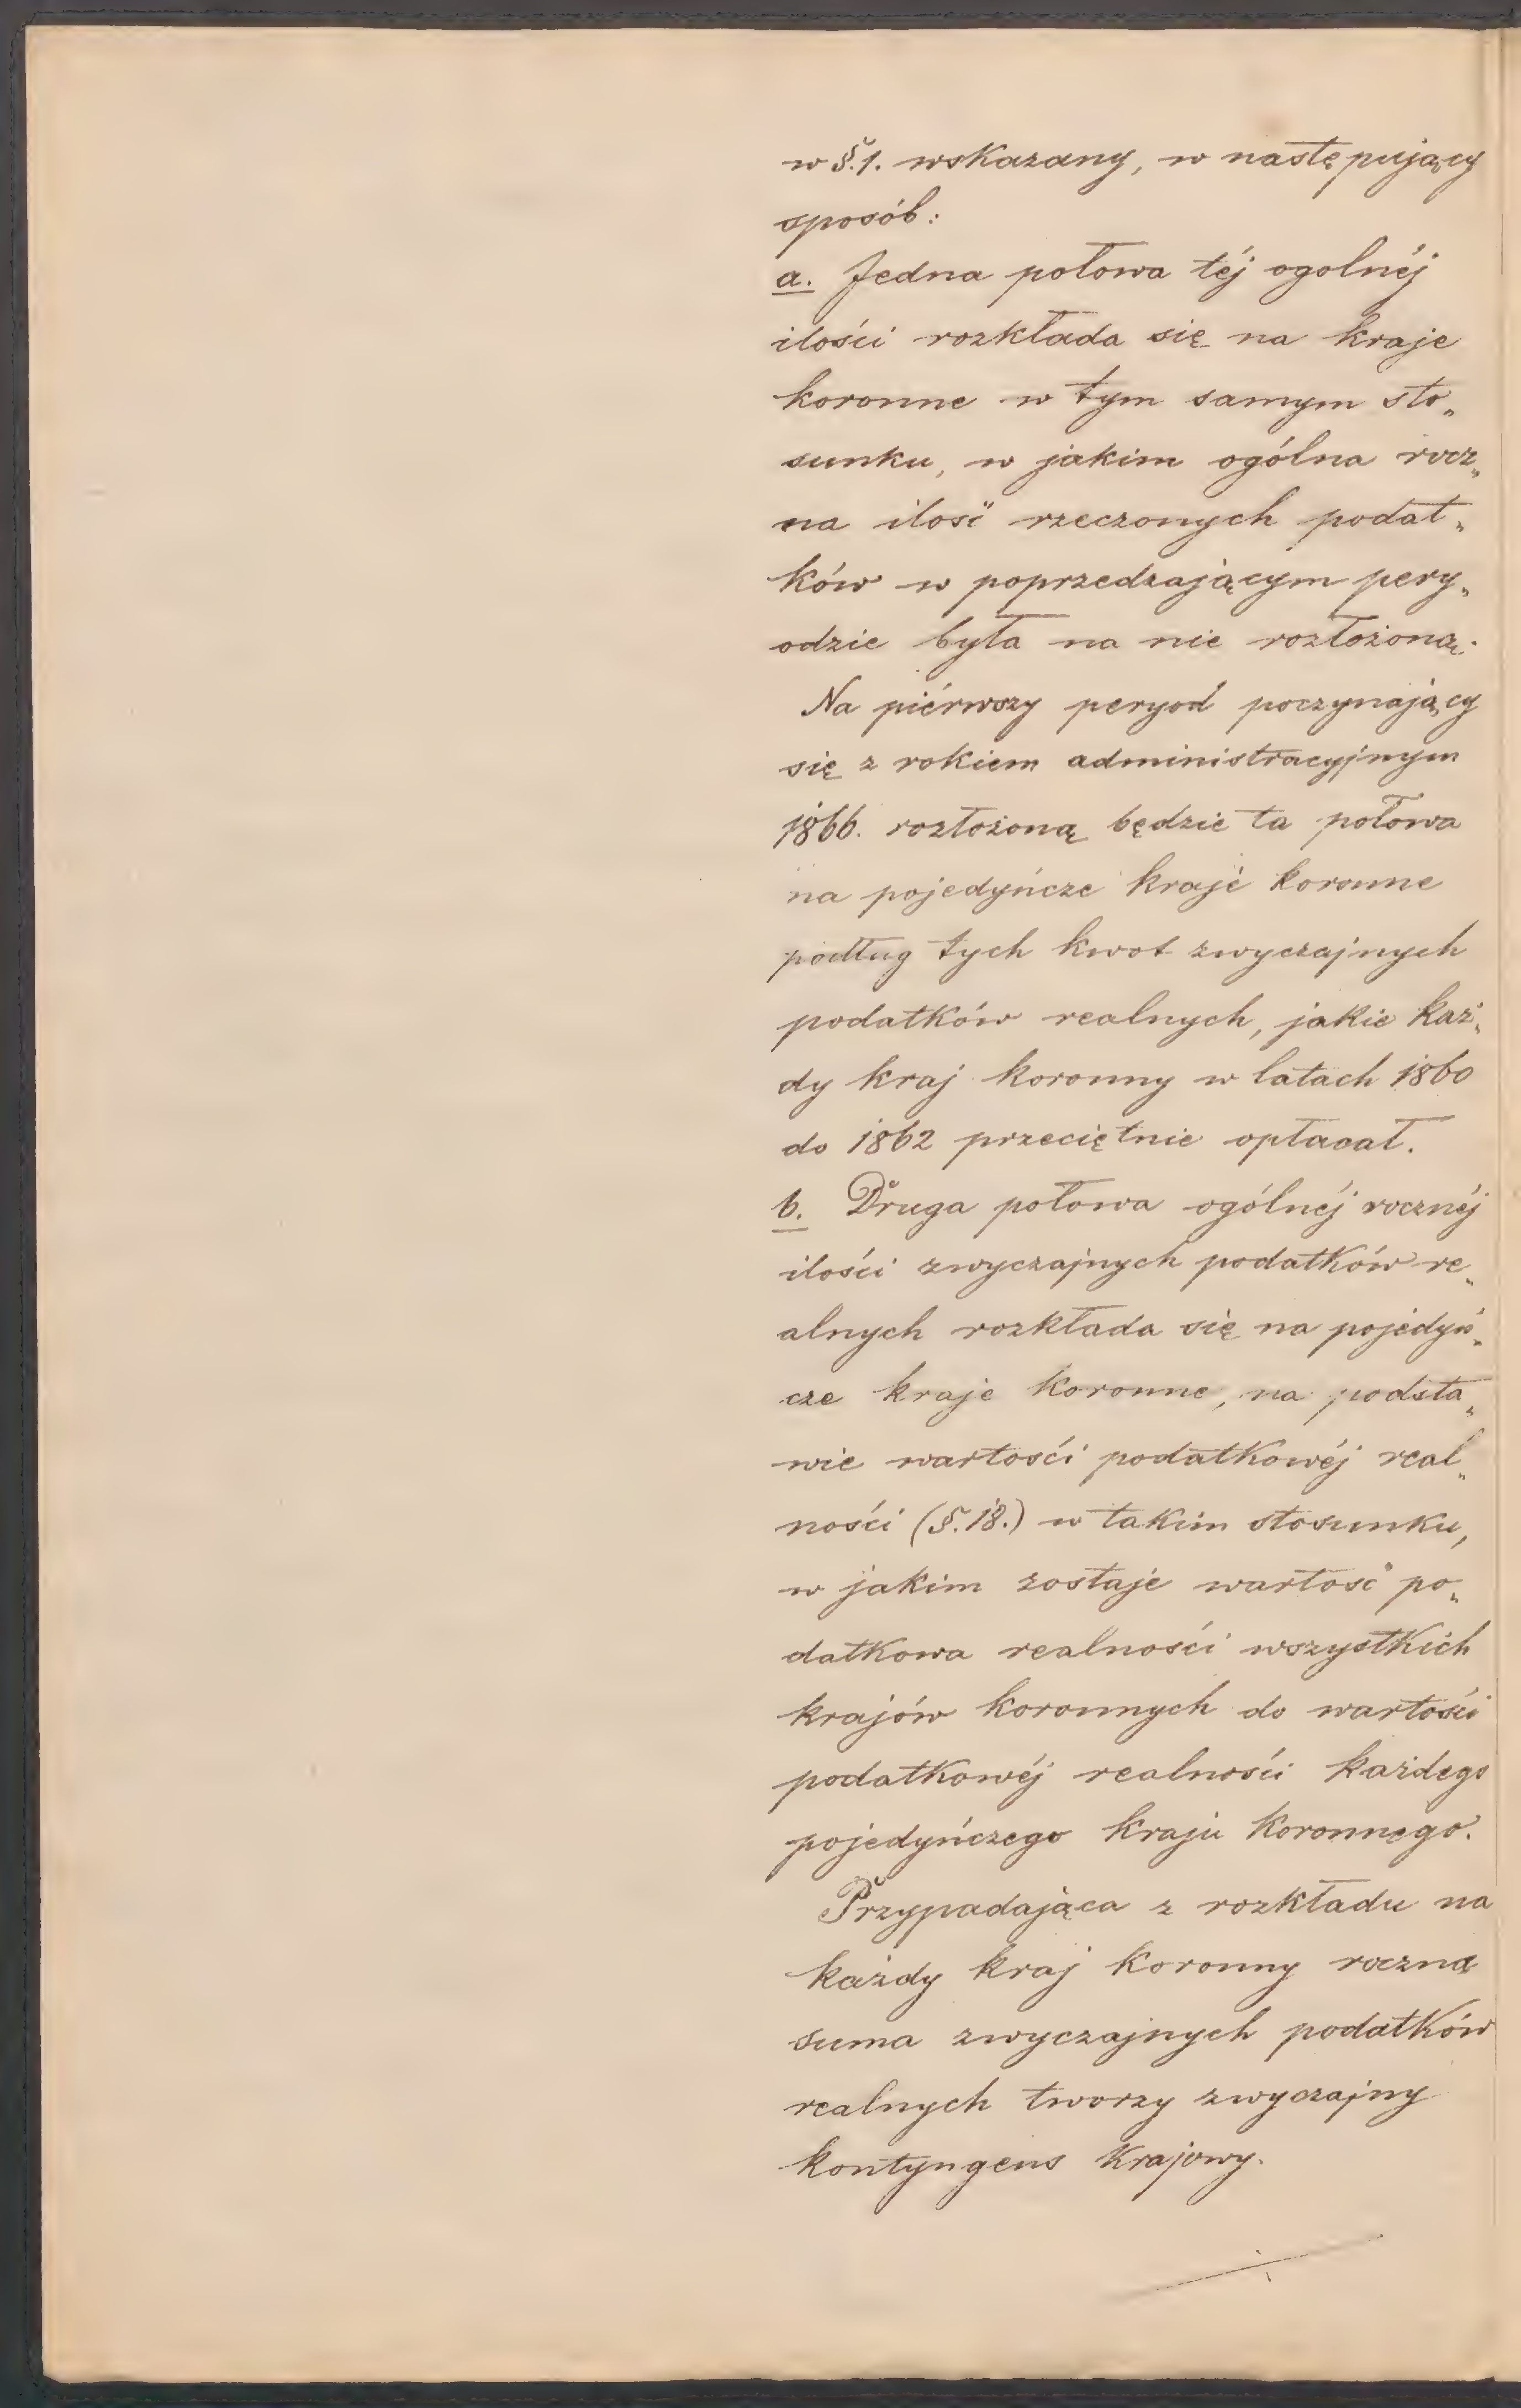 w §.1. wskazany, w następujący
sposób:
a. Jedna połowa téj ogolnéj
ilości rozkłada się na kraje
koronne w tym samym sto„
sunku, w jakim ogólna rocz„
na ilość rzeczonych podat„
ków w poprzedzającym pery„
odzie była na nie rozłożoną.
Na piérwszy peryod poczynający
się z rokiem administracyjnym
1866. rozłożoną będzie ta połowa
na pojedyńcze kraje koronne
podług tych kwot zwyczajnych
podatków realnych, jakie każ„
dy kraj koronny w latach 1860
do 1862 przeciętnie opłacał.
b. Druga połowa ogólnéj rocznéj
ilości zwyczajnych podatków re„
alnych rozkłada się na pojedyń„
cze kraje koronne, na podsta„
wie wartości podatkowéj real„
ności (§.18.) w takim stosunku,
w jakim zostaje wartość po„
datkowa realności wszystkich
krajów koronnych do wartości
podatkowéj realności każdego
pojedyńczego kraju koronnego.
Przypadająca z rozkładu na
każdy kraj koronny roczna
suma zwyczajnych podatków
realnych tworzy zwyczajny
kontyngens krajowy.